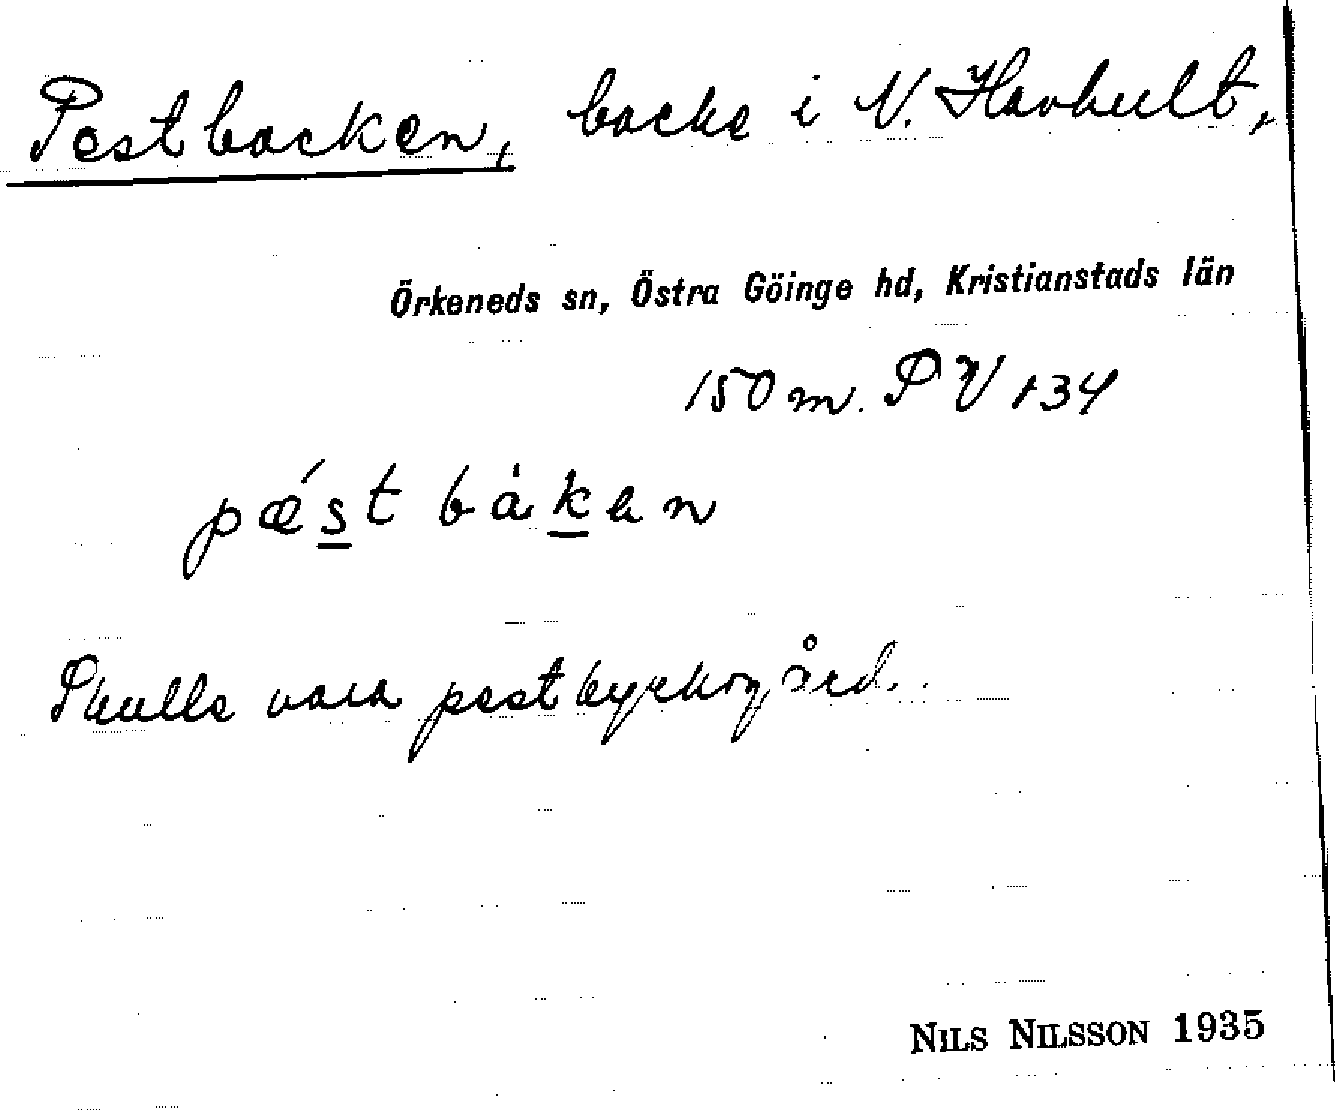 Pestbacken, backe i N. Havhult,
Örkeneds sn, Östra Göinge hd, Kristianstads län
150 m. PV 134
pǽst bȧkan
Skulle vara pestkyrkogård.
NILS NILSSON 1935